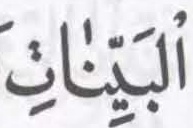 اُلبَيِّنَٰاتِ